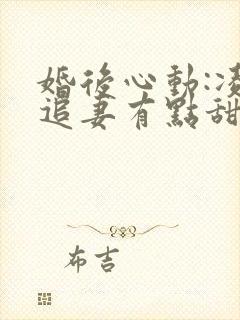 婚後心動:凌
追妻有點甜
布吉